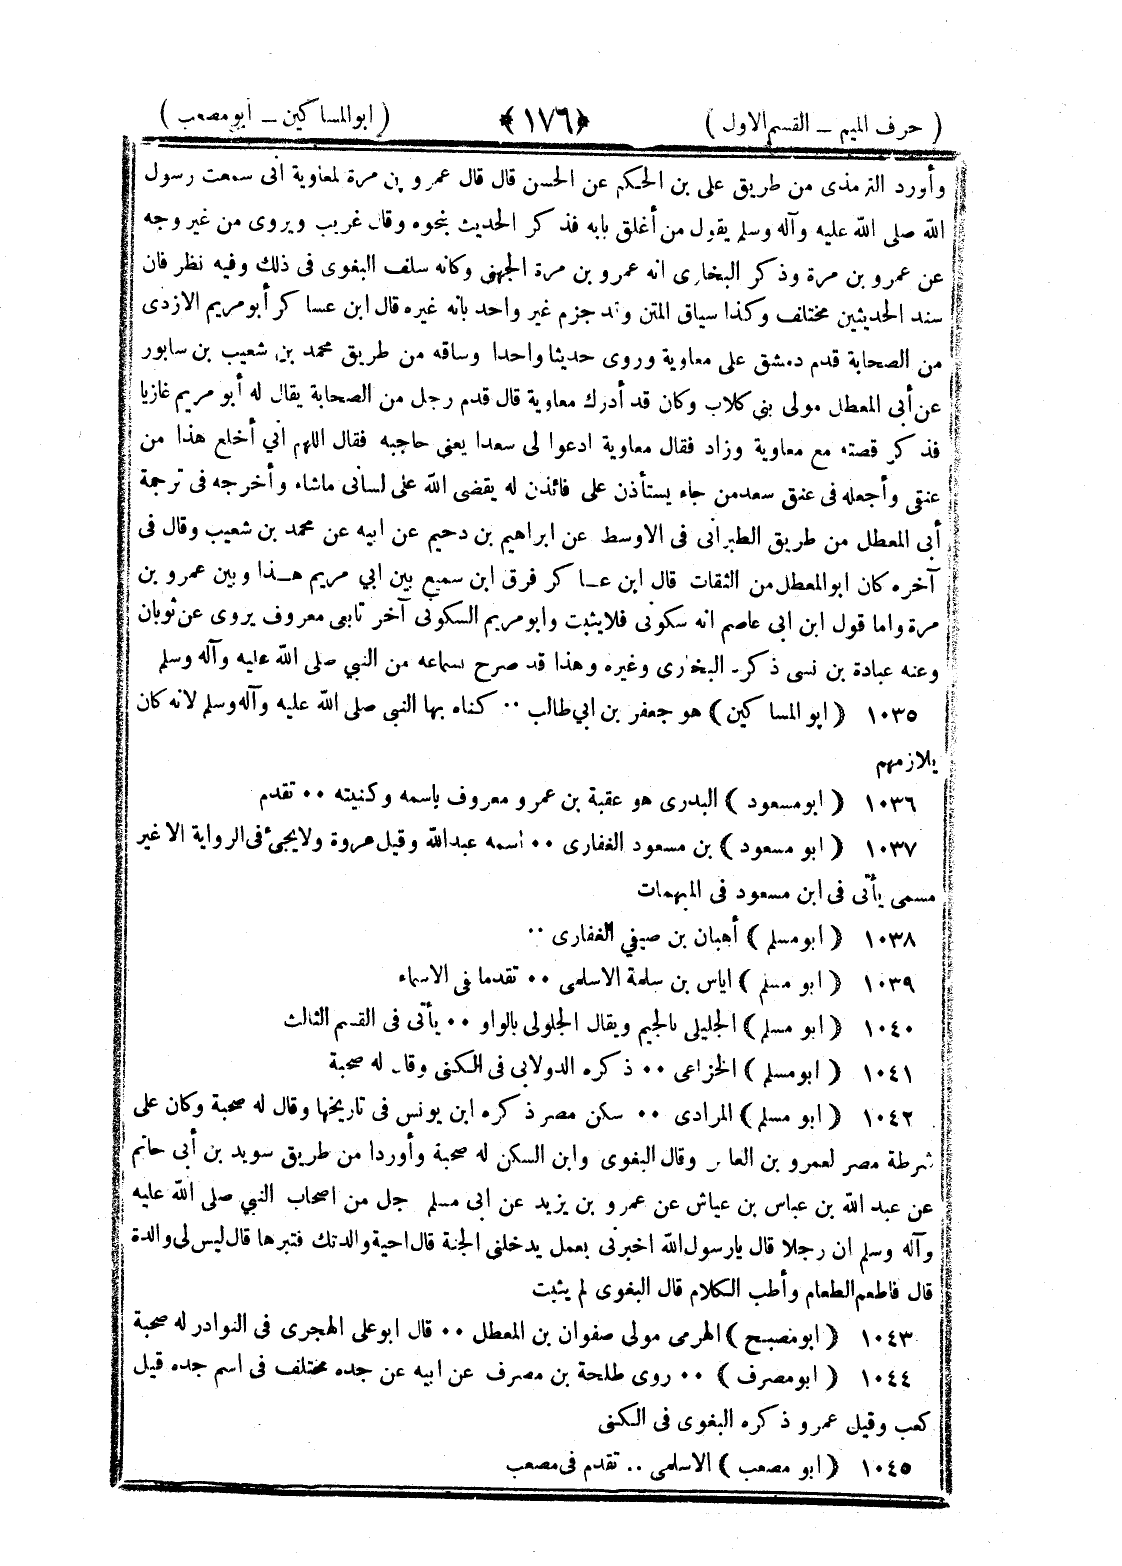 ( حرف الميم – القسم الاول ) ﴿١٧٦﴾ ( ابوالمساكين – ابومصعب )
وأورد الترمذى من طريق على بن الحكم عن الحسن قال قال عمرو بن مرة لمعاوية انى سمعت رسول
الله صلى الله عليه وآله وسلم يقول من أغلق بابه فذكر الحديث بنحوه وقال غريب ويروى من غير وجه
عن عمرو بن مرة وذكر البخارى انه عمرو بن مرة الجهنى وكانه سلف البغوى فى ذلك وفيه نظر فان
سند الحديثين مختلف وكذا سياق المتن وقد جزم غير واحد بانه غيره قال ابن عساكر أبومريم الازدى
من الصحابة قدم دمشق على معاوية وروى حديثا واحدا وساقه من طريق محمد بن شعيب بن سابور
عن أبى المعطل مولى بنى كلاب وكان قد أدرك معاوية قال قدم رجل من الصحابة يقال له أبو مريم غازيا
فذكر قصته مع معاوية وزاد فقال معاوية ادعوا لى سعدا يعنى حاجبه فقال اللهم انى أخلع هذا من
عنقى وأجعله فى عنق سعد من جاء يستأذن على فائذن له يقضى الله على لسانى ماشاء وأخرجه فى ترجمة
أبى المعطل من طريق الطبرانى فى الاوسط عن ابراهيم بن دحيم عن ابيه عن محمد بن شعيب وقال فى
آخره كان ابوالمعطل من الثقات قال ابن عساكر فرق ابن سميع بين ابي مريم هذا وبين عمرو بن
مرة واما قول ابن ابى عاصم انه سكونى فلايثبت وابو مريم السكونى آخر تابعى معروف يروى عن ثوبان
وعنه عبادة بن نسى ذكره البخارى وغيره وهذا قد صرح بسماعه من النبي صلى الله عليه وآله وسلم
١٠٣٥ ( ابو المساكين ) هو جعفر بن ابي طالب ·· كناه بها النبى صلى الله عليه وآله وسلم لانه كان
يلازمهم
١٠٣٦ ( ابومسعود ) البدرى هو عقبة بن عمرو معروف باسمه وكنيته ·· تقدم
١٠٣٧ ( ابو مسعود ) بن مسعود الغفارى ·· اسمه عبدالله وقيل عروة ولايجىء فى الرواية الا غير
مسمى يأتى فى ابن مسعود فى المبهمات
١٠٣٨ ( ابومسلم ) أهبان بن صيفي الغفارى ··
١٠٣٩ ( ابو مسلم ) اياس بن سلمة الاسلمى ·· تقدما فى الاسماء
١٠٤٠ ( ابو مسلم ) الجليلى بالجيم ويقال الجلولى بالواو ·· يأتى فى القسم الثالث
١٠٤١ ( ابومسلم ) الخزاعى ·· ذكره الدولابى فى الكنى وقال له صحبة
١٠٤٢ ( ابو مسلم ) المرادى ·· سكن مصر ذكره ابن يونس فى تاريخها وقال له صحبة وكان على
شرطة مصر لعمرو بن العاص وقال البغوى وابن السكن له صحبة وأوردا من طريق سويد بن أبى حاتم
عن عبد الله بن عباس بن عياش عن عمرو بن يزيد عن ابى مسلم رجل من اصحاب النبي صلى الله عليه
وآله وسلم ان رجلا قال يارسول الله اخبرنى بعمل يدخلنى الجنة قال احية والدتك فتبرها قال ليس لى والدة
قال فاطعم الطعام وأطب الكلام قال البغوى لم يثبت
١٠٤٣ ( ابومصبح ) الهرمى مولى صفوان بن المعطل ·· قال ابو على الهجرى فى النوادر له صحبة
١٠٤٤ ( ابومصرف ) ·· روى طلحة بن مصرف عن ابيه عن جده مختلف فى اسم جده قيل
كعب وقيل عمرو ذكره البغوى فى الكنى
١٠٤٥ ( ابو مصعب ) الاسلمى ·· تقدم فى مصعب